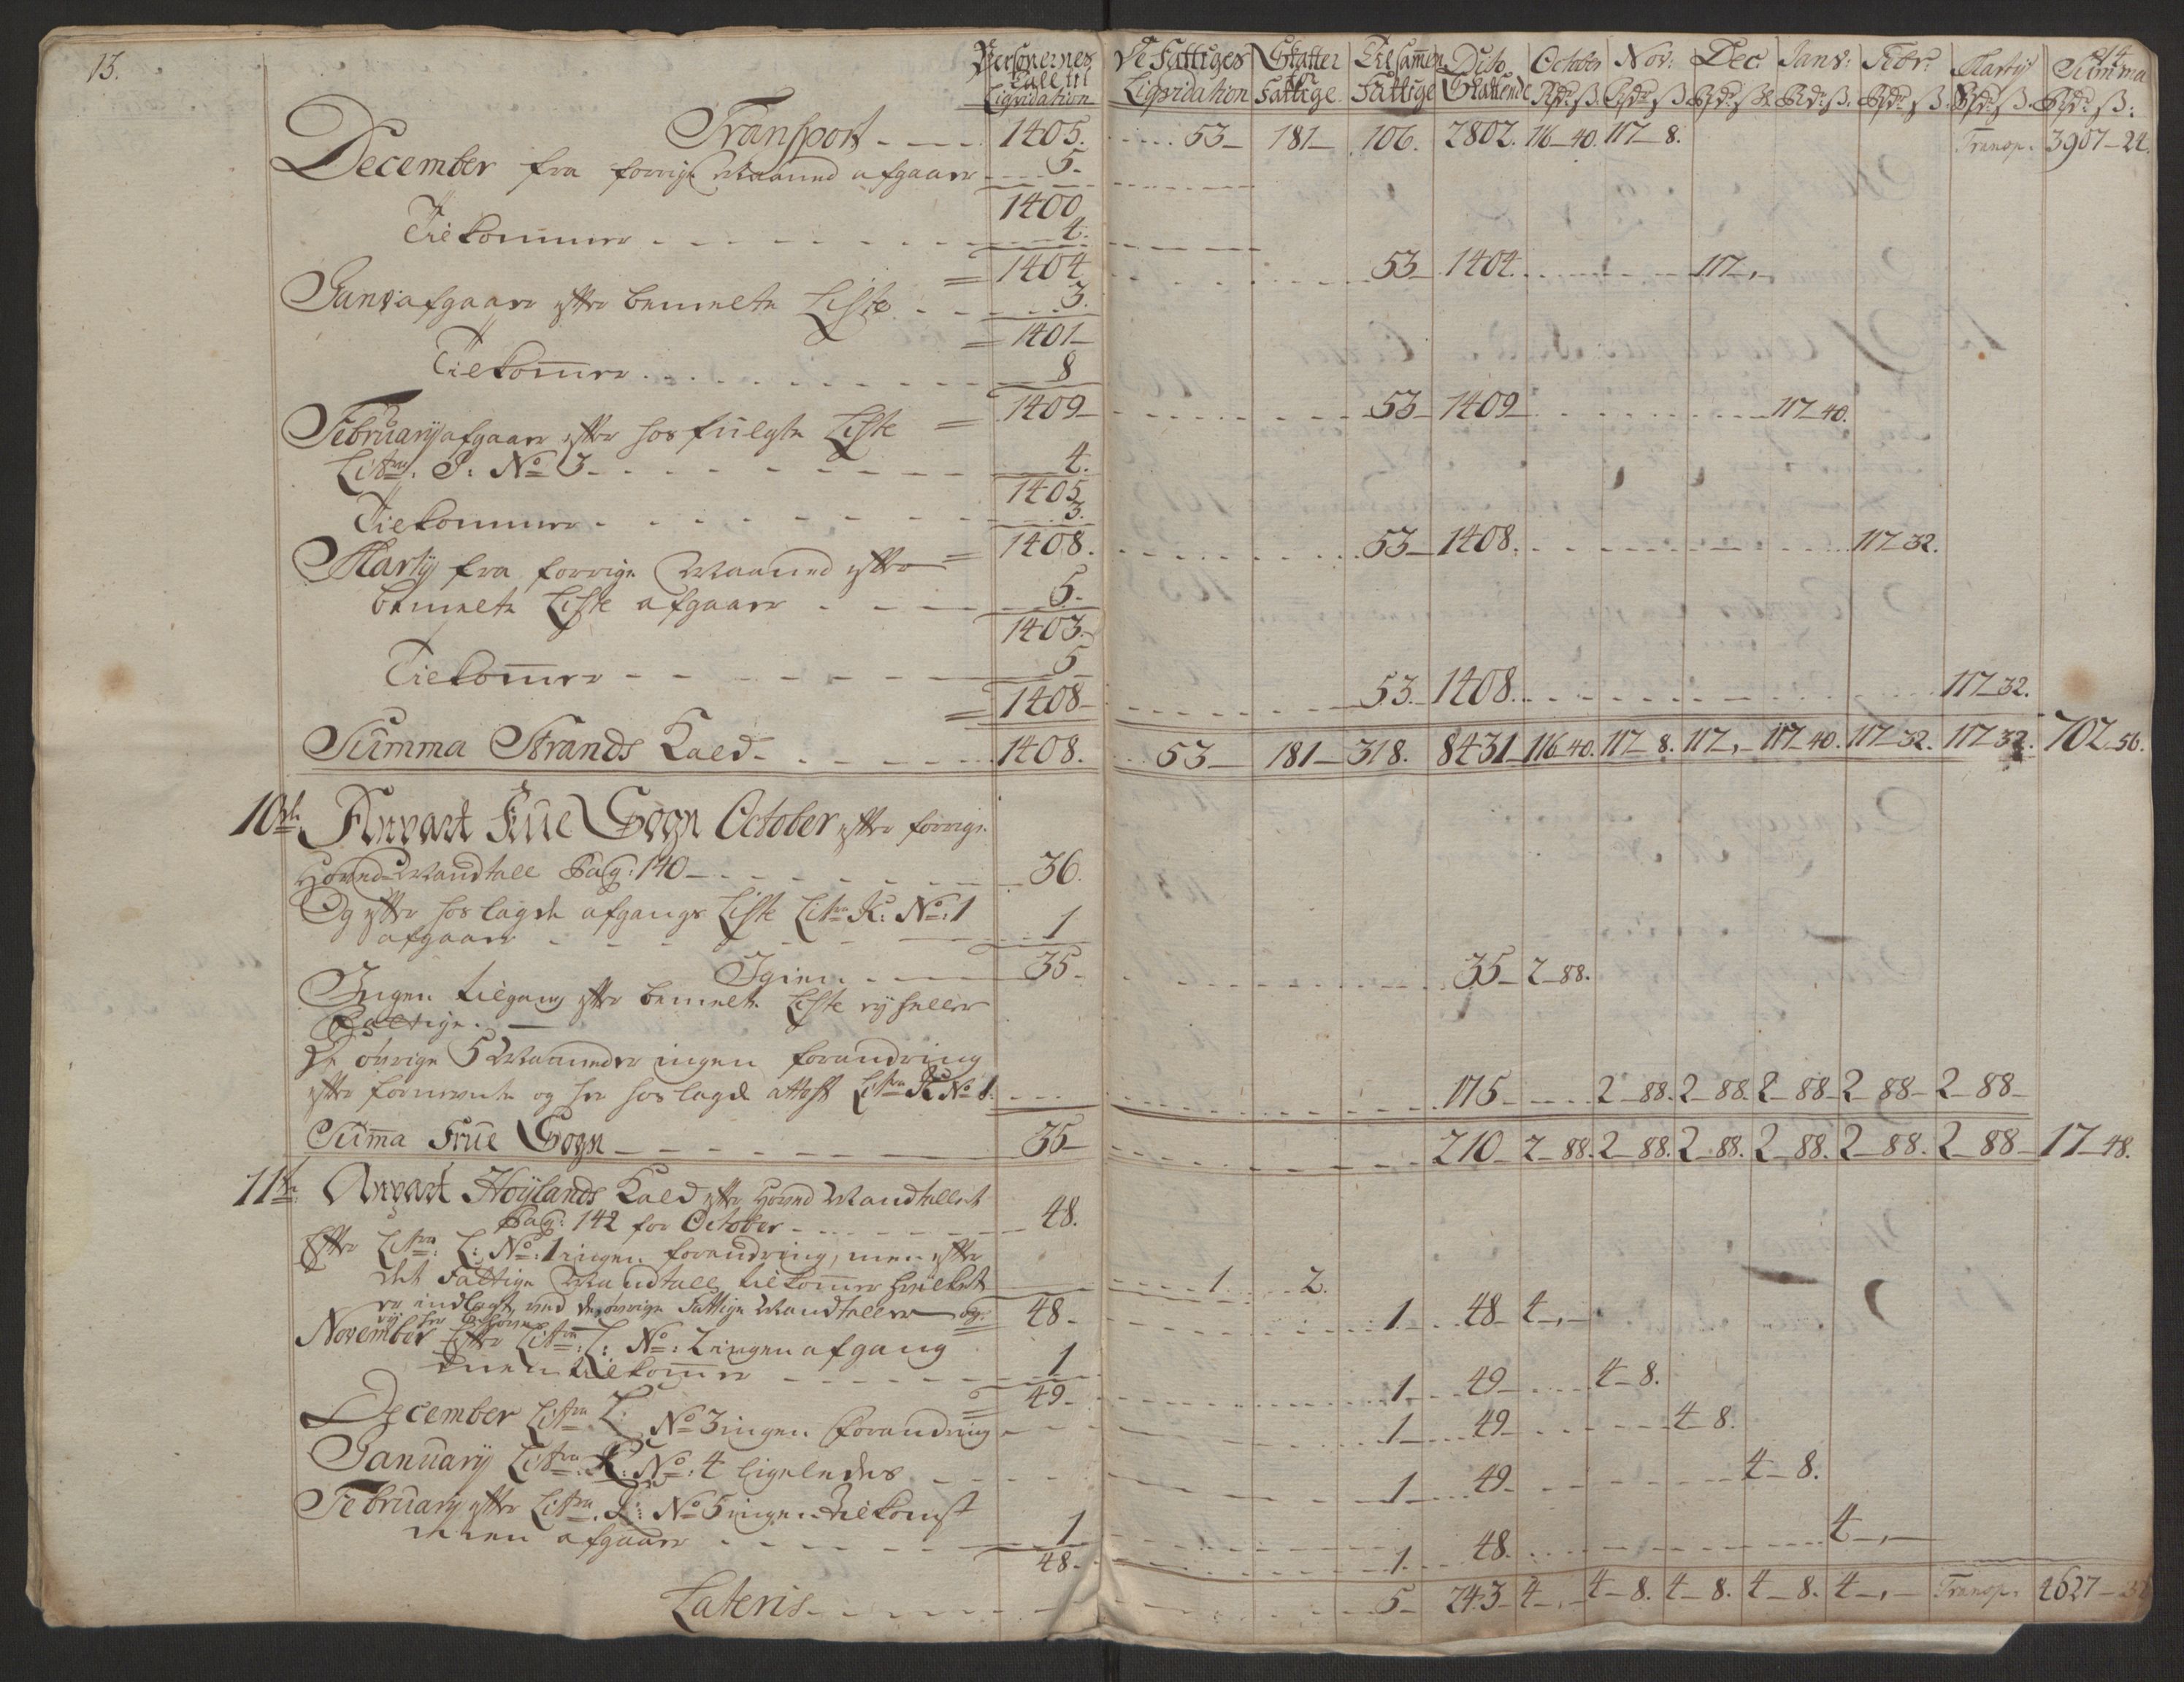 13.
14
Personernes Tall til Liqvidation | De Fattiges Liqvidation | Skatter for Fattige | Tilsamen Fattige | Dito Skattende | October Rdr ß. | Nov: Rdr ß | Dec: Rdr ß | Janv: Rdr ß. | Febr: Rdr ß. | Martij Rdr ß. | Summa Rdr ß:
Transport - - - - 1405. ..... 53 - 181 - 106. 2802. 116-40. 117-8. Transp. 3907-24.
December fra forrige Maaned afgaaer - - - 5.
1400
Tilkommer - - - - - - - - 4.
= 1404 53 - 1404. 117 -,-
Janv: afgaaer efter bemelte Liste - - - 3.
= 1401 -
Tilkomer - - - - - - - - 8
= 1409 - 53 - 1409 - 117-40.
February afgaaer efter hosfulgte Liste
Litra. I: No 3 - - - - - - - - 4.
1405
Tilkommer - - - - - - - - 3.
= 1408. 53 - 1408. 117-32.
Martij fra forrige Maaned efter
bemelte Liste afgaaer - - - - 5.
1403 -
Tilkomer - - - - - - - 5
= 1408 - 53. 1408. 117-32.
Summa Strands Kald - - - - - 1408. 53 - 181 - 318. 8431 - 116-40. 117-8. 117-,- 117-40. 117-32. 117-32. 702-56.
10de Anvart Frue Sogn October efter forrige
Hoved-Mandtall Pag: 140 - - - - - 36.
Og efter hoslagde afgangs Liste Litra K: No: 1
afgaaer - - - - - - - 1
Igien - - - 35 - 35 - 2-88.
Ingen tilgang efter bemelte Liste ej heller
Fattige. -
De øvrige 5 Maaneder ingen forandring
efter formente og her hoslagde attest Litra K No 1. 175 - 2-88. 2-88. 2-88 - 2-88 - 2-88 -
Suma Frue Sogn - - - - - - - 35 - 210 - 2-88. 2-88. 2-88. 2-88. 2-88. 2-88 - 17-48.
11te Anvart Høylands Kald efter Hoved Mandtallet
Pag: 142 for October - - - - - 48.
Efter Litra: L: No: 1 ingen forandring, men efter
det Fattige Mandtall tilkommer hvilket 1. 2.
er indlagt ved de øvrige Fattige Mandtaller 48 - 1 - 48 - 4 -,-
November Efter Litra: L: No: 2 ingen afgang
men tilkomer - - - - - - 1
= 49 - 1 - 49 - 4-8.
December Litra L: No 3 ingen forandring - 1 - 49 - 4-8.
January Litra. K: No: 4 ligeledes - - - 1 - 49 - 4-8.
February efter Litra. L: No 5 ingen tilkomst
men afgaaer - - - - - - 1
48 - 1. 48. 4 -,-
Lateris - - - - - - 5 - 243 - 4 -,- 4-8. 4-8. 4-8. 4 -,- Transp. 4627-32